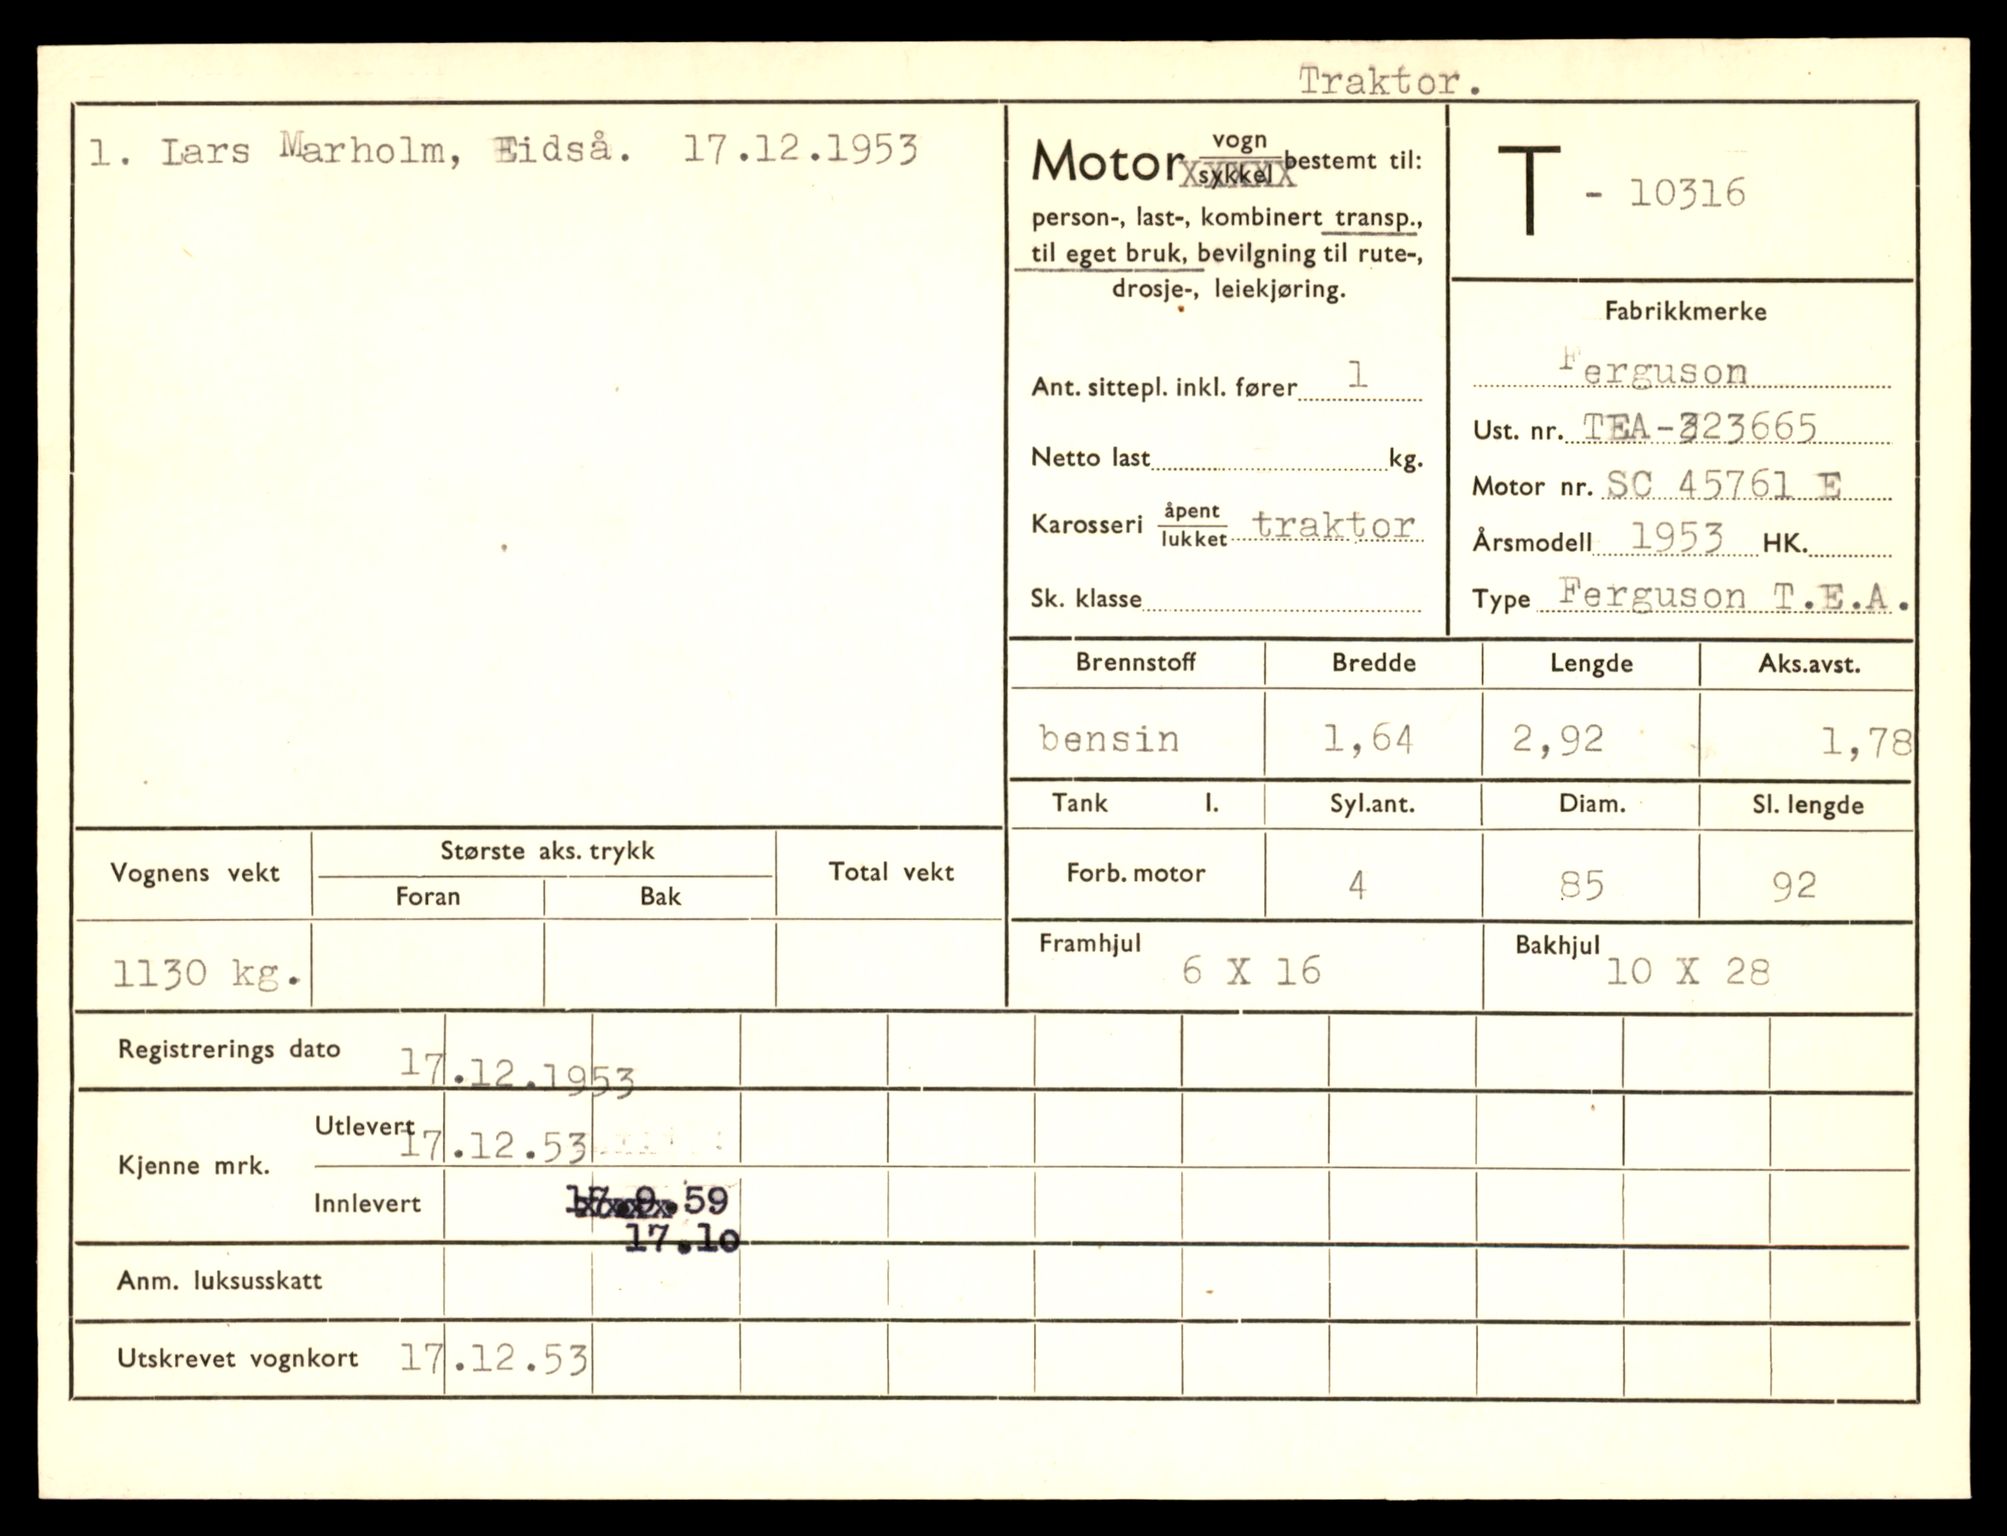 Traktor.
1. Lars Marholm, Eidså. 17.12.1953
Motor vogn
sykkel bestemt til:
person-, last-, kombinert transp.,
til eget bruk, bevilgning til rute-,
drosje-, leiekjøring.
Ant. sittepl. inkl. fører 1
Netto last kg.
Karosseri åpent
lukket traktor
Sk. klasse
T - 10316
Fabrikkmerke
Ferguson
Ust. nr. TEA-323665
Motor nr. SC 45761 E
Årsmodell 1953 HK.
Type Ferguson T.E.A.
Brennstoff Bredde Lengde Aks.avst.
bensin 1,64 2,92 1,78
Tank l. Syl.ant. Diam. Sl. lengde
Forb. motor 4 85 92
Framhjul 6 X 16 Bakhjul 10 X 28
Vognens vekt Største aks. trykk Total vekt
Foran Bak
1130 kg.
Registrerings dato 17.12.1953
Kjenne mrk. Utlevert 17.12.53
Innlevert 17.9.59
17.10
Anm. luksusskatt
Utskrevet vognkort 17.12.53